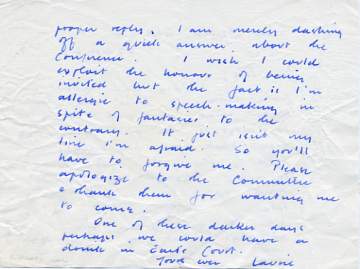 proper reply. I am merely dashing
off a quick answer about the
Conference. I wish I could
exploit the honour of being
invited but the fact is I'm
allergic to speech-making in
spite of fantasies to the
contrary. It just isn't my
line I'm afraid. So you'll
have to forgive me. Please
apologize to the Committee
& thank them for wanting me
to come.
One of these darker days
perhaps we could have a
drink in Earls Court.
Yours ever Laurie